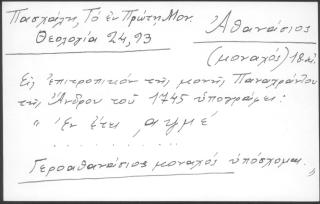 Πασχάλη, Τό ἐν Πρώτῃ Μον.
Θεολογία 24, 93
Ἀθανάσιος
(μοναχός) 18 αἰ.
Εἰς ἐπιτροπικόν τῆς μονῆς Παναχράντου
τῆς Ἄνδρου τοῦ 1745 ὑπογράφει:
"ἐν ἔτει, αψμέ
. . . . . . . . . .
Γεροαθανάσιος μοναχός ὑπόσχομαι."